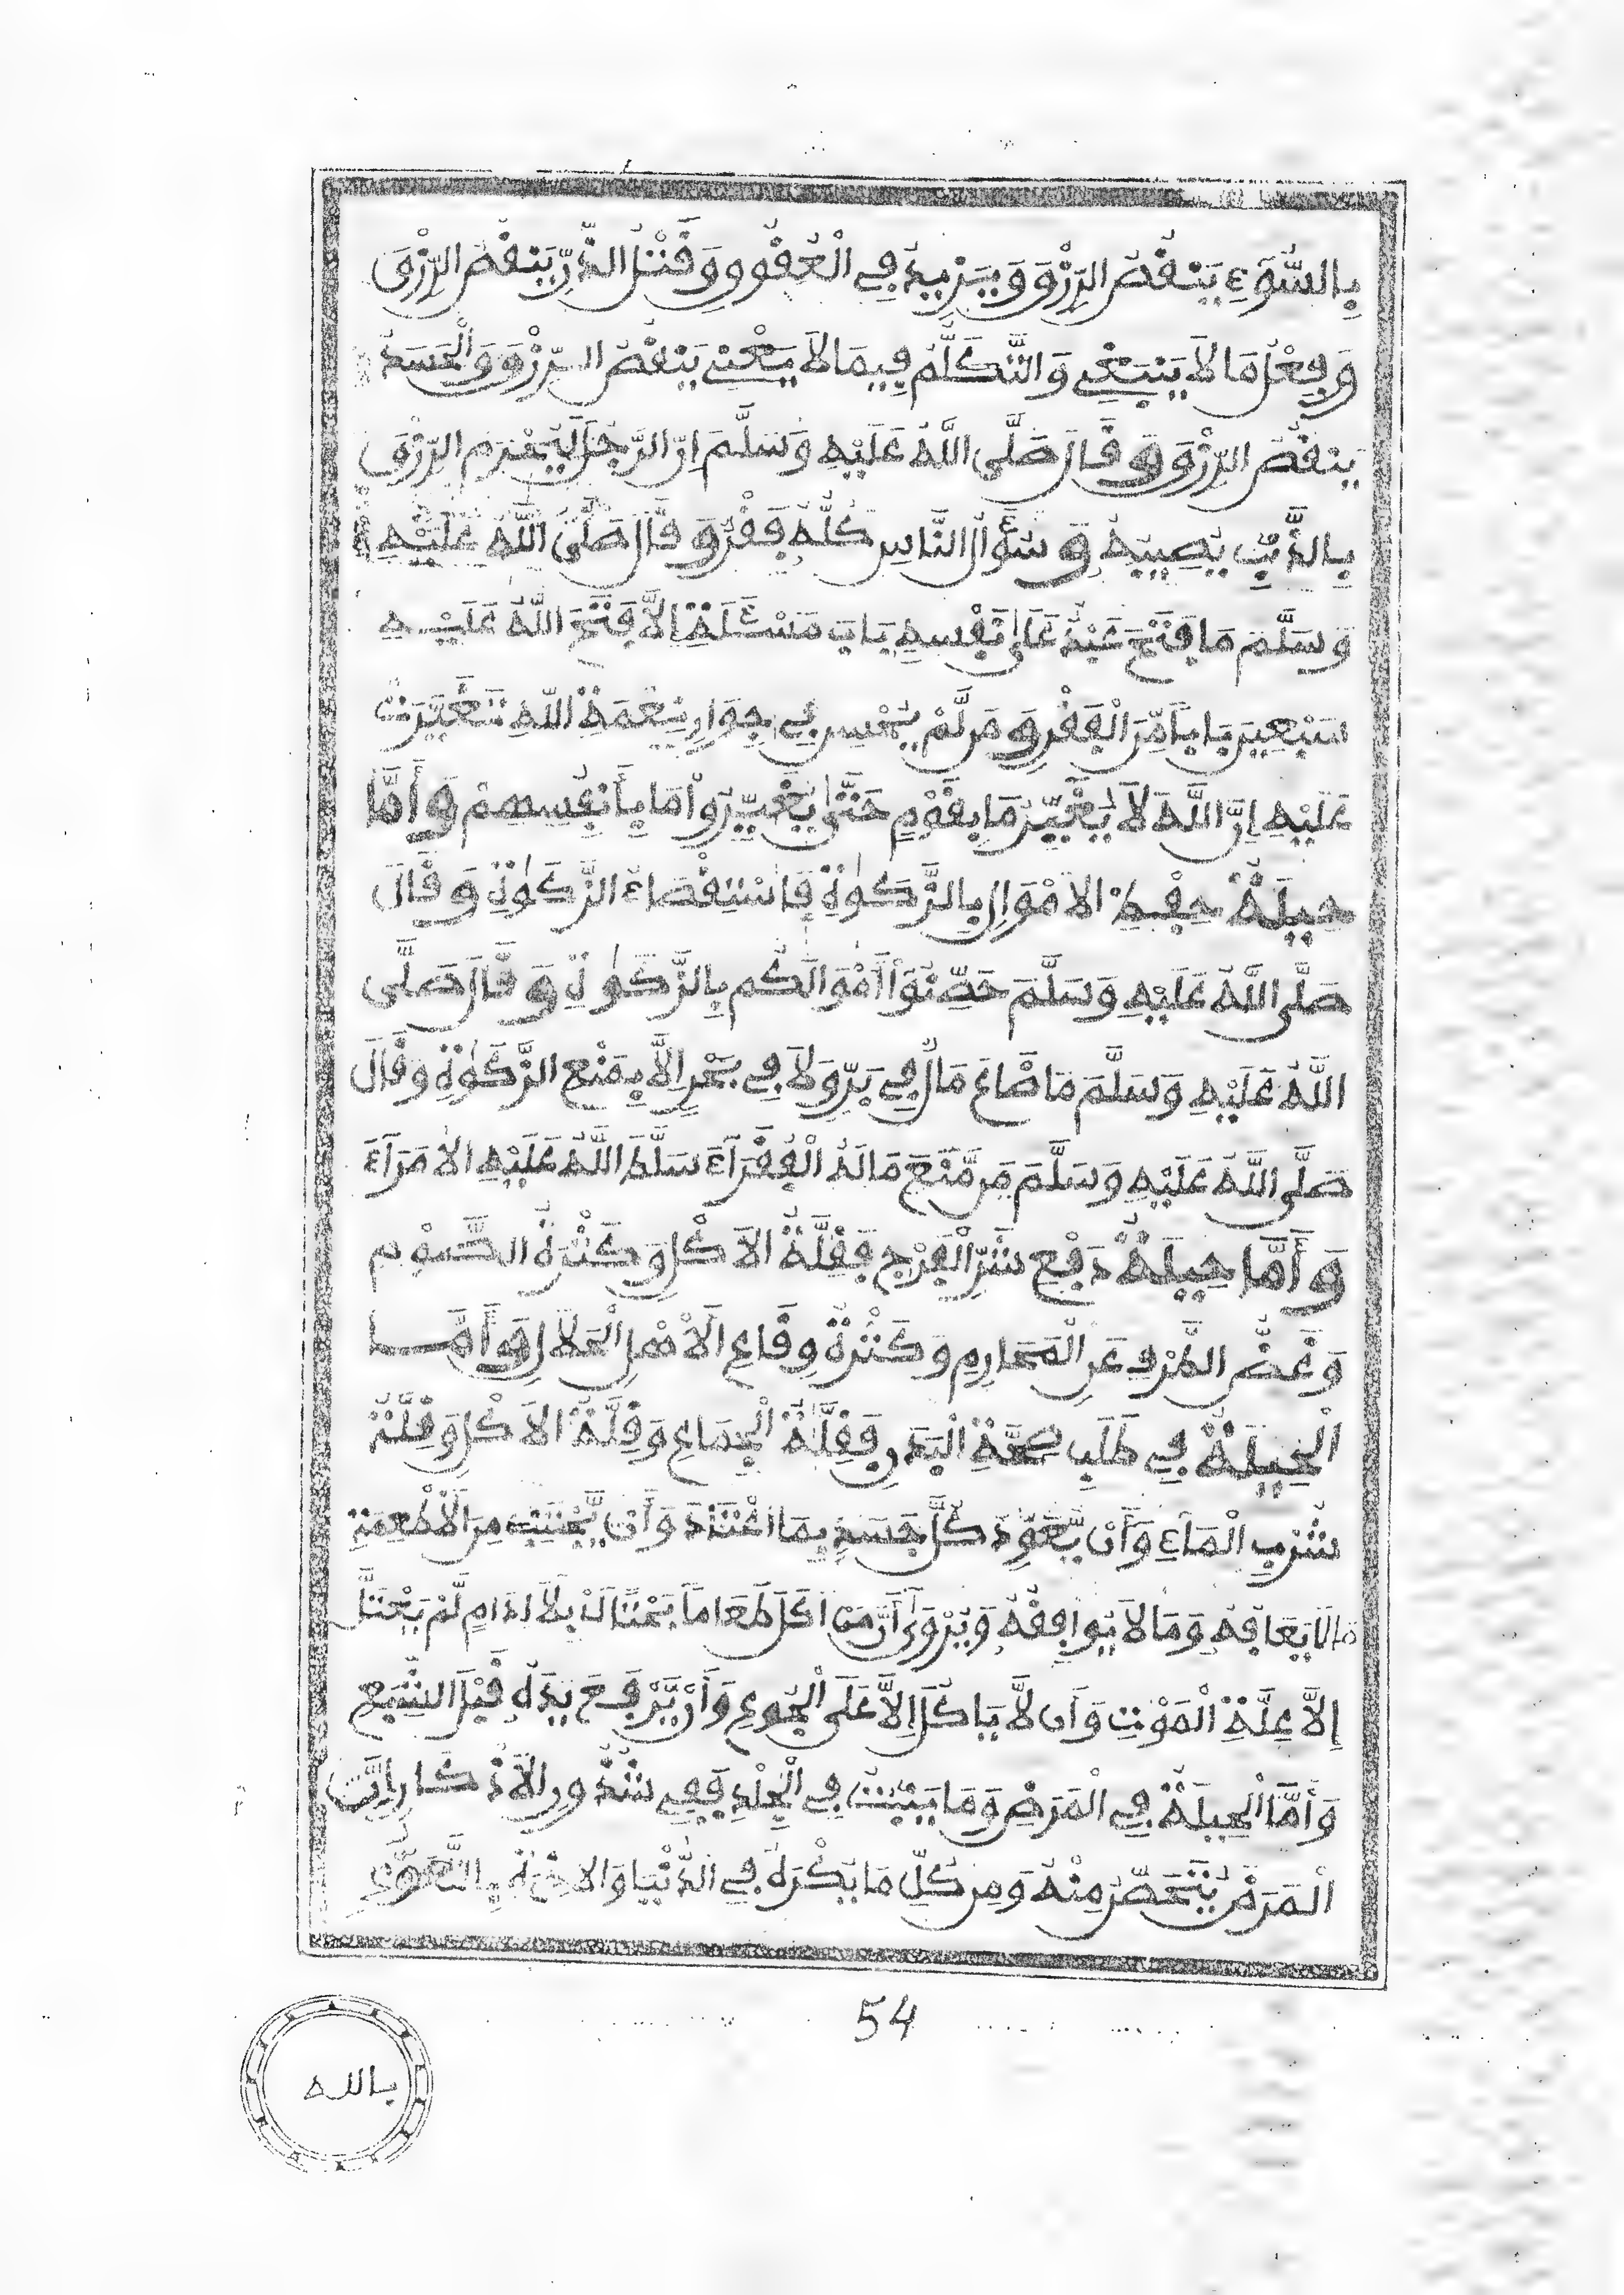 بِالسُّوٓءِ يَنْقُصُ الرِّزْقَ وَيَزِيدُ فِي الْعُقُو وَقَتْلُ الذَّرِّ يَنْقُصُ الرِّزْقَ
وَفِعْلُ مَا لَا يَنْبَغِي وَالتَّكَلُّمُ فِيمَا لَا يَعْنِي يَنْقُصُ الرِّزْقَ وَالْحَسَدُ
يَنْقُصُ الرِّزْقَ وَقَالَ صَلَّى اللَّهُ عَلَيْهِ وَسَلَّمَ إِنَّ الرَّجُلَ لَيُحْرَمُ الرِّزْقَ
بِالذَّنْبِ يُصِيبُهُ وَسُؤَالُ النَّاسِ كُلُّهُ فَقْرٌ وَقَالَ صَلَّى اللَّهُ عَلَيْهِ
وَسَلَّمَ مَا فَتَحَ عَبْدٌ عَلَى نَفْسِهِ بَابَ مَسْئَلَةٍ إِلَّا فَتَحَ اللَّهُ عَلَيْهِ
سَبْعِينَ بَابًا مِّنَ الْفَقْرِ وَمَن لَّمْ يُحْسِن فِي جِوَارِ نِعْمَةِ اللَّهِ تَغَيَّرَتْ
عَلَيْهِ إِنَّ اللَّهَ لَا يُغَيِّرُ مَا بِقَوْمٍ حَتَّىٰ يُغَيِّرُوا مَا بِأَنفُسِهِمْ وَأَمَّا
حِيلَةُ حِفْظِ الْأَمْوَالِ بِالزَّكَوٰةِ فَاسْتِقْصَاءُ الزَّكَوٰةِ وَقَالَ
صَلَّى اللَّهُ عَلَيْهِ وَسَلَّمَ حَصِّنُوٓا أَمْوَالَكُم بِالزَّكَوٰةِ وَقَالَ صَلَّى
اللَّهُ عَلَيْهِ وَسَلَّمَ مَا ضَاعَ مَالٌ فِي بَرٍّ وَلَا فِي بَحْرٍ إِلَّا بِمَنْعِ الزَّكَوٰةِ وَقَالَ
صَلَّى اللَّهُ عَلَيْهِ وَسَلَّمَ مَن مَّنَعَ مَالَهُ الْفُقَرَآءَ سَلَّطَ اللَّهُ عَلَيْهِ الْأُمَرَآءَ
وَأَمَّا حِيلَةُ دَفْعِ شَرِّ الْفَرْجِ فَقِلَّةُ الْأَكْلِ وَكَثْرَةُ الصَّوْمِ
وَغَضُّ الطَّرْفِ عَنِ الْمَحَارِمِ وَكَثْرَةُ وِقَاعِ الْأَهْلِ الْحَلَالِ وَأَمَّا
الْحِيلَةُ فِي طَلَبِ صِحَّةِ الْبَدَنِ فَقِلَّةُ الْجِمَاعِ وَقِلَّةُ الْأَكْلِ وَقِلَّةُ
شُرْبِ الْمَآءِ وَأَنْ يُّعَوِّدَ كُلَّ جَسَدٍ بِمَا اعْتَادَ وَأَنْ يَّجْتَنِبَ مِنَ الْأَطْعِمَةِ
مَا لَا يَعَافُهُ وَمَا لَا يُوَافِقُهُ وَيُرْوَىٰ أَنَّ مَنْ أَكَلَ طَعَامًا بَحْتًا بِلَا إِدَامٍ لَّمْ يَعْتَلَّ
إِلَّا عِلَّةَ الْمَوْتِ وَأَن لَّا يَاكُلَ إِلَّا عَلَى الْجُوعِ وَأَنْ يَّرْفَعَ يَدَهُ قَبْلَ الشِّبَعِ
وَأَمَّا الْحِيلَةُ فِي الْمَرَضِ وَمَا يَنْبُتُ فِي الْجِلْدِ فَفِي شُذُورِ الْأَذْكَارِ إِنَّ
الْمَرَضَ يُتَحَصَّنُ مِنْهُ وَمِن كُلِّ مَا يُكْرَهُ فِي الدُّنْيَا وَالْآخِرَةِ بِالتَّعَوُّذِ
54
بالله